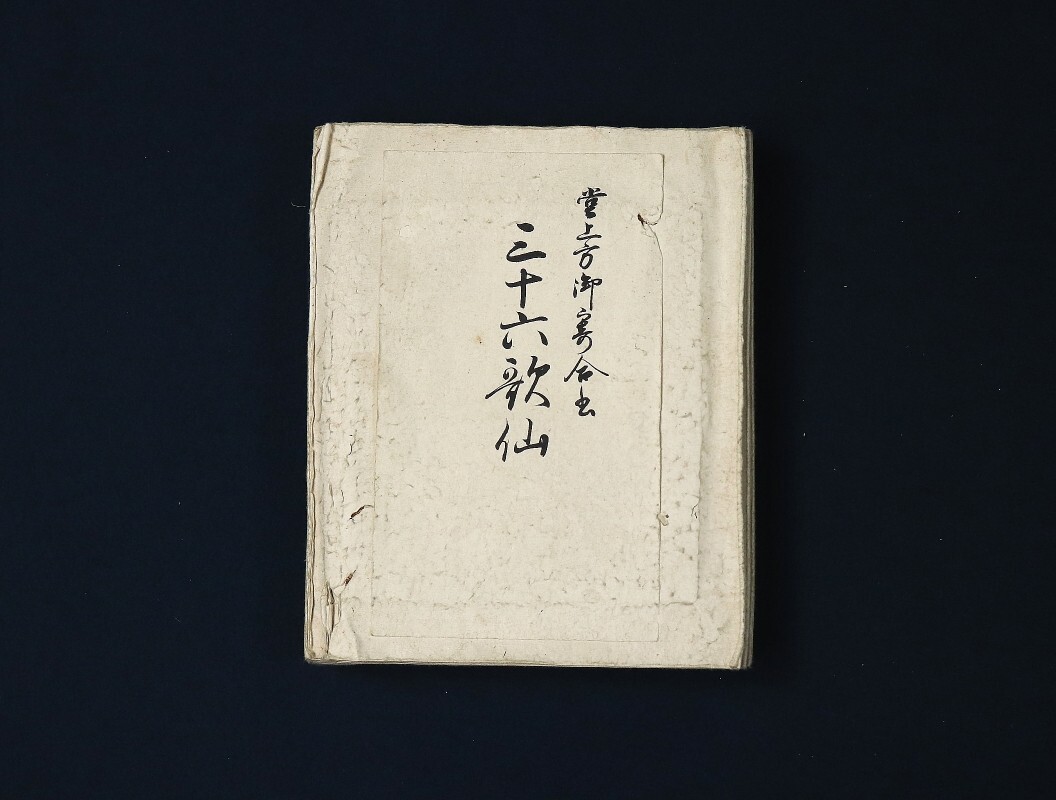 堂上方御寄合書
三十六歌仙